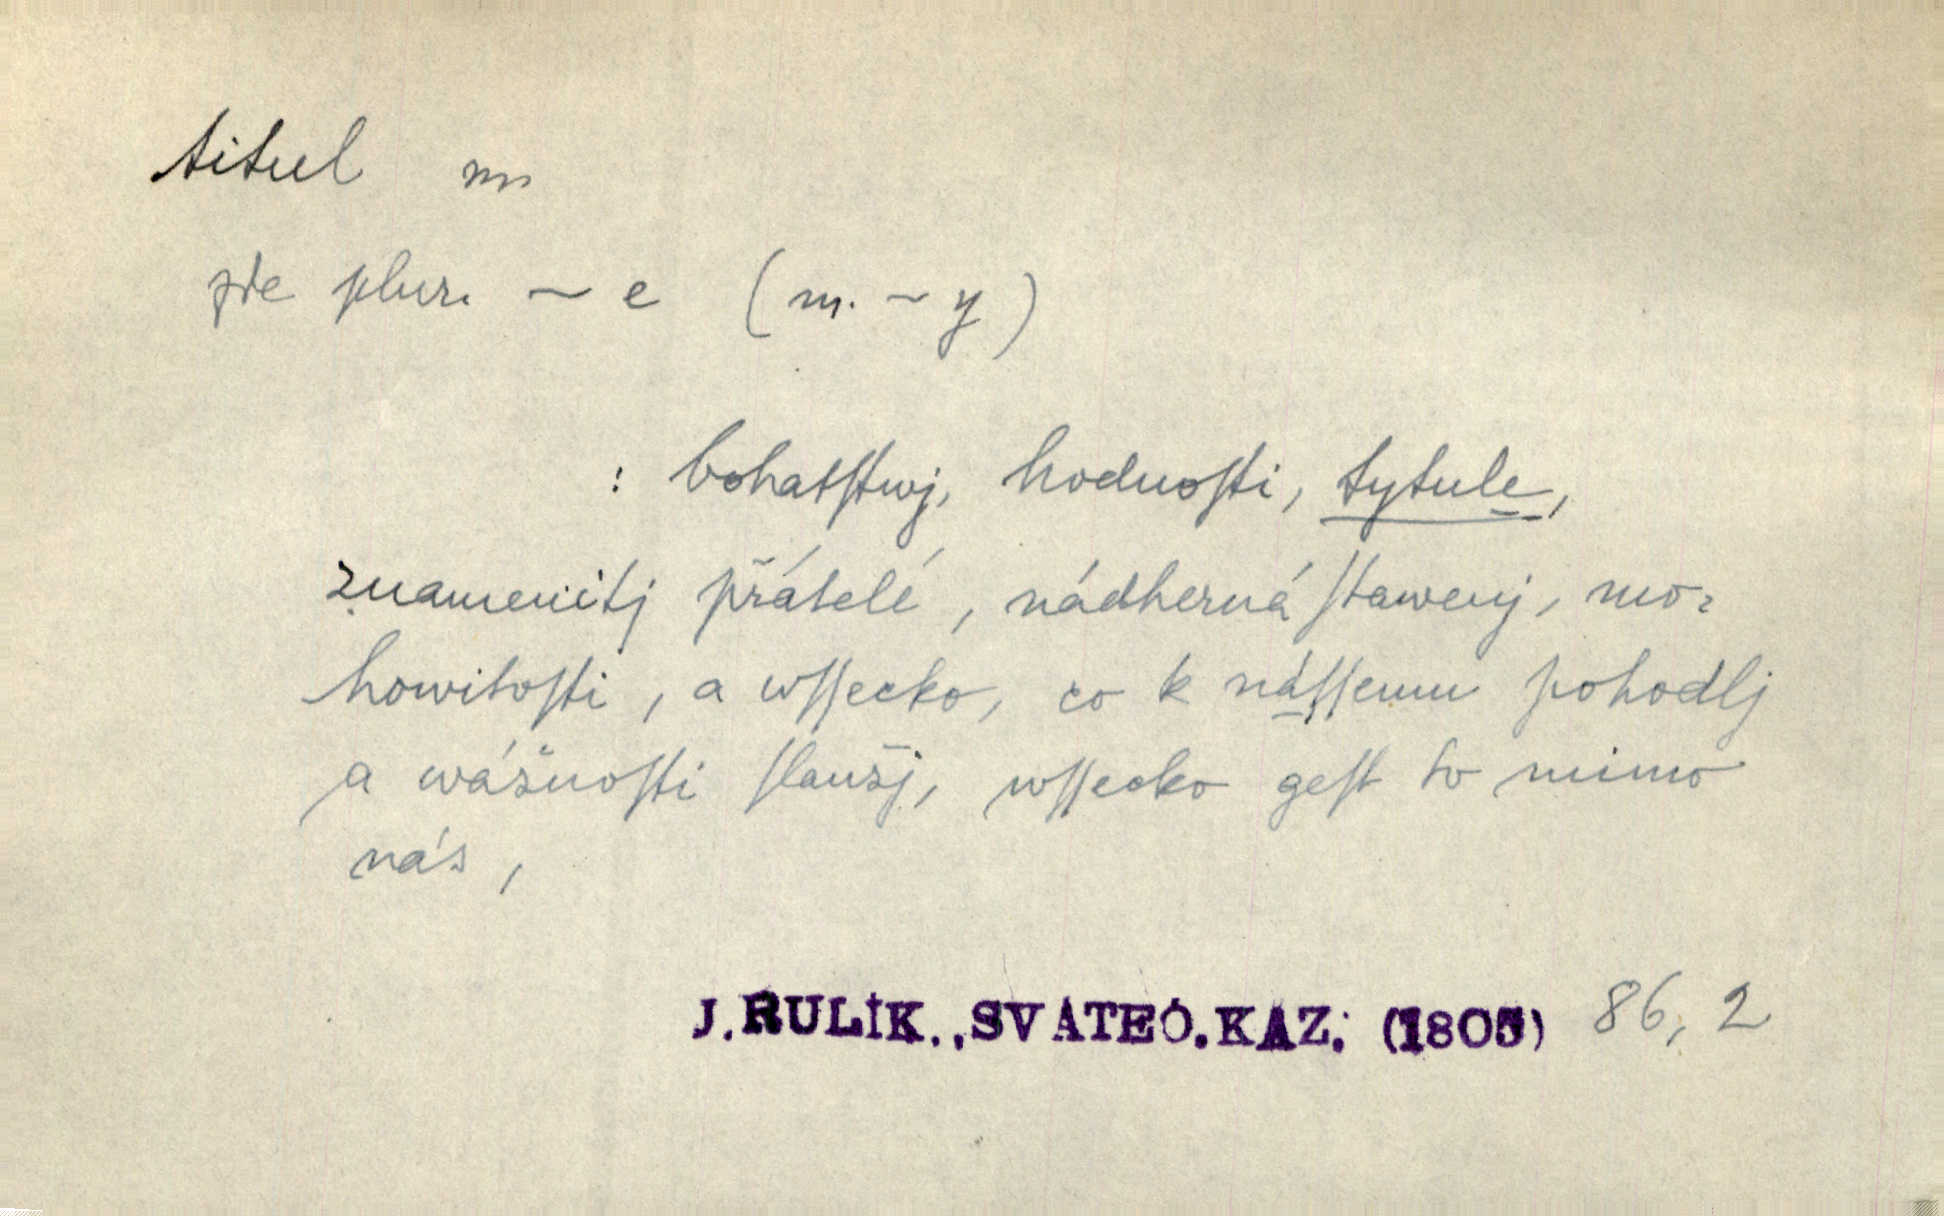 titul m
pře plur. ~ e (m. ~ y)
: bohatſtwj, hodnoſti, tytule,
znamenitj přátelé, nádherná ſtawenj, mo-
howitoſti, a wſſecko, co k náſſemu pohodlj
a wážnoſti ſlaužj, wſſecko geſt to mimo
nás,
J.RULÍK.,SVÁTEČ.KÁZ. (1805) 86,2